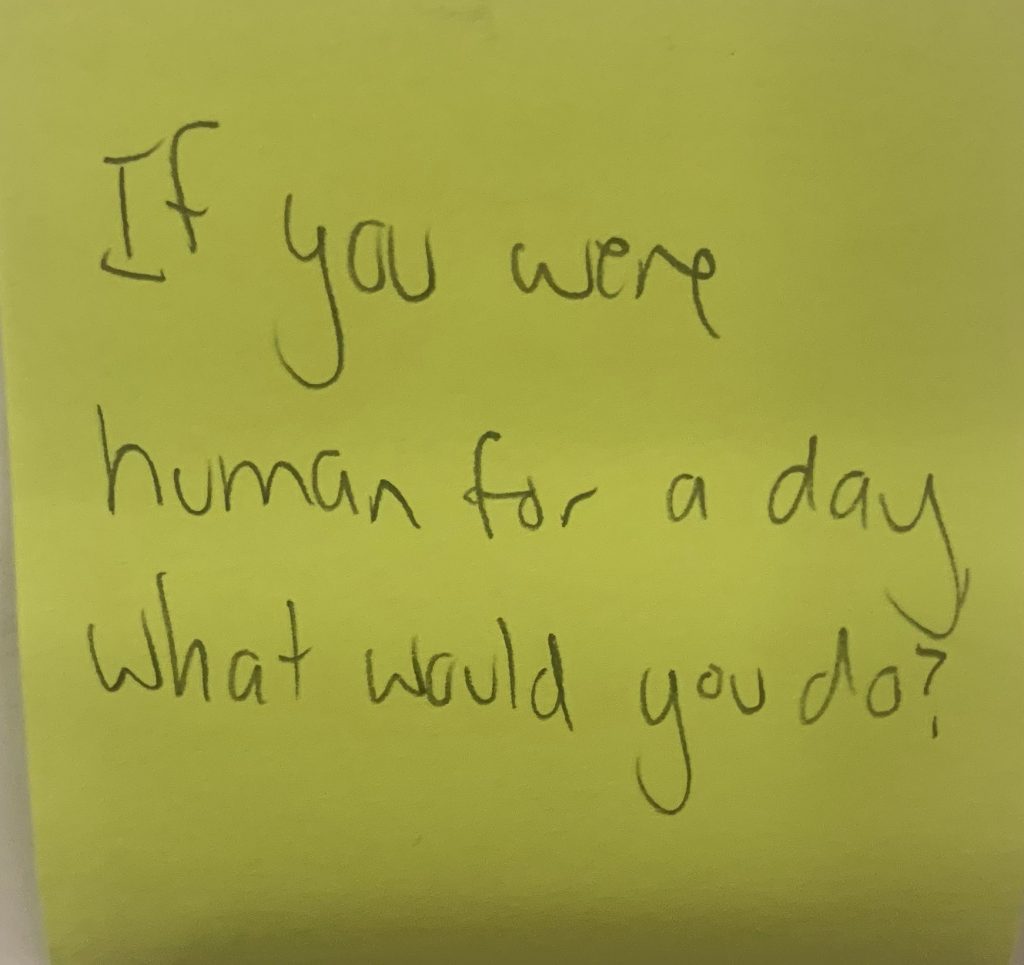 If you were
human for a day
What would you do?